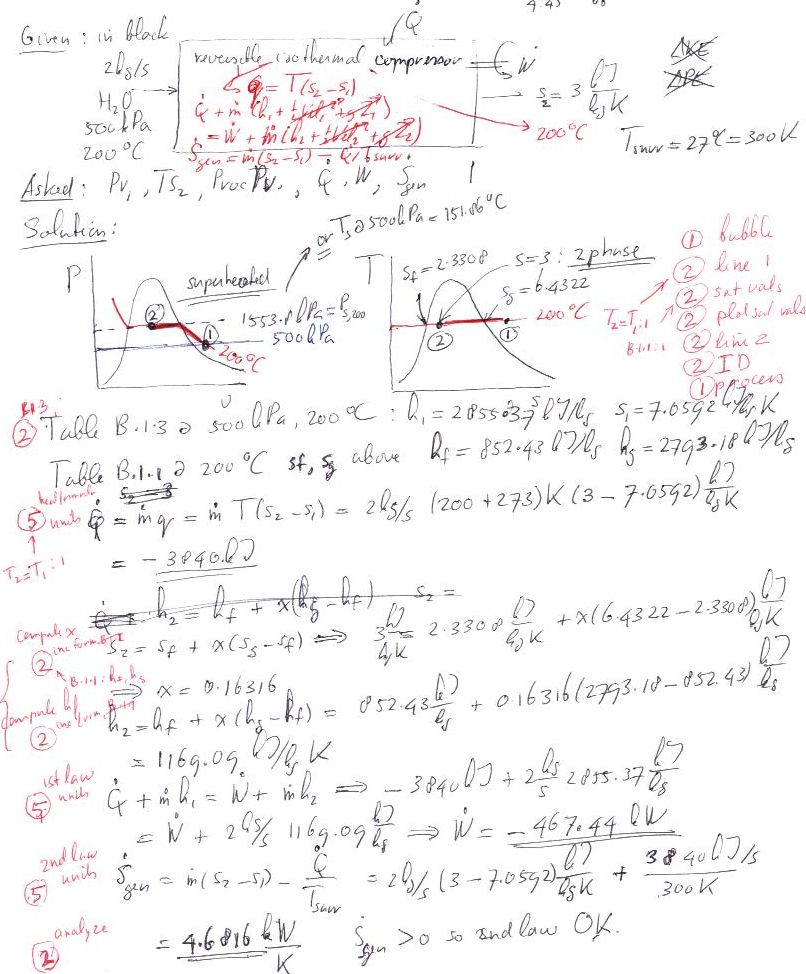 4.45
Given : in black
Q̇
2kg/s
H₂O
500kPa
200°C
reversible isothermal compressor
q = T(s₂-s₁)
Q̇ + ṁ(h₁ + ½Vel₁² + gZ₁)
= Ẇ + ṁ(h₂ + ½Vel₂² + gZ₂)
Ṡgen = ṁ(s₂-s₁) - Q̇/Tsurr.
Ẇ
s₂ = 3 kJ/kg K
200°C
ΔKE
ΔPE
Tsurr = 27°C = 300K
Asked : Pv₁, Ts₂, Proc Pv, Q̇, Ẇ, Ṡgen
Solution:
or Ts@500kPa = 151.86°C
P
superheated
1553.8kPa = Ps,200
500kPa
200°C
②
①
T
sf = 2.3308
s=3 : 2phase
sg = 6.4322
200°C
②
①
T₂=T₁:1
B.1.1:1
① bubble
② line 1
② sat vals
② plot sat vals
② line 2
② ID
① process
B.1.3:
② Table B.1.3 @ 500kPa, 200°C : h₁ = 2855.37 kJ/kg s₁ = 7.0592 kJ/kg K
Table B.1.1 @ 200°C sf, sg above hf = 852.43 kJ/kg hg = 2793.18 kJ/kg
s₂ = 3
heat formula
⑤ units Q̇ = ṁq = ṁ T(s₂-s₁) = 2kg/s (200+273)K (3 - 7.0592) kJ/kg K
T₂=T₁:1
= -3840.kJ
Q̇ = h₂ = hf + x(hg-hf) s₂ =
compute x
② inc form.
s₂ = sf + x(sg-sf) ⟹ 3 kJ/kg K = 2.3308 kJ/kg K + x(6.4322-2.3308) kJ/kg K
B.1.1: hf, hg
⟹ x = 0.16316
compute h
② inc form.
h₂ = hf + x(hg-hf) = 852.43 kJ/kg + 0.16316(2793.18-852.43) kJ/kg
= 1169.09 kJ/kg K
1st law
⑤ units
Q̇ + ṁh₁ = Ẇ + ṁh₂ ⟹ -3840kJ + 2 kg/s 2855.37 kJ/kg
= Ẇ + 2kg/s 1169.09 kJ/kg ⟹ Ẇ = -467.44 kW
2nd law
⑤ units
Ṡgen = ṁ(s₂-s₁) - Q̇/Tsurr = 2kg/s (3-7.0592) kJ/kg K + 3840kJ/s / 300K
analyze
②
= 4.6816 kW/K Ṡgen > 0 so 2nd law OK.